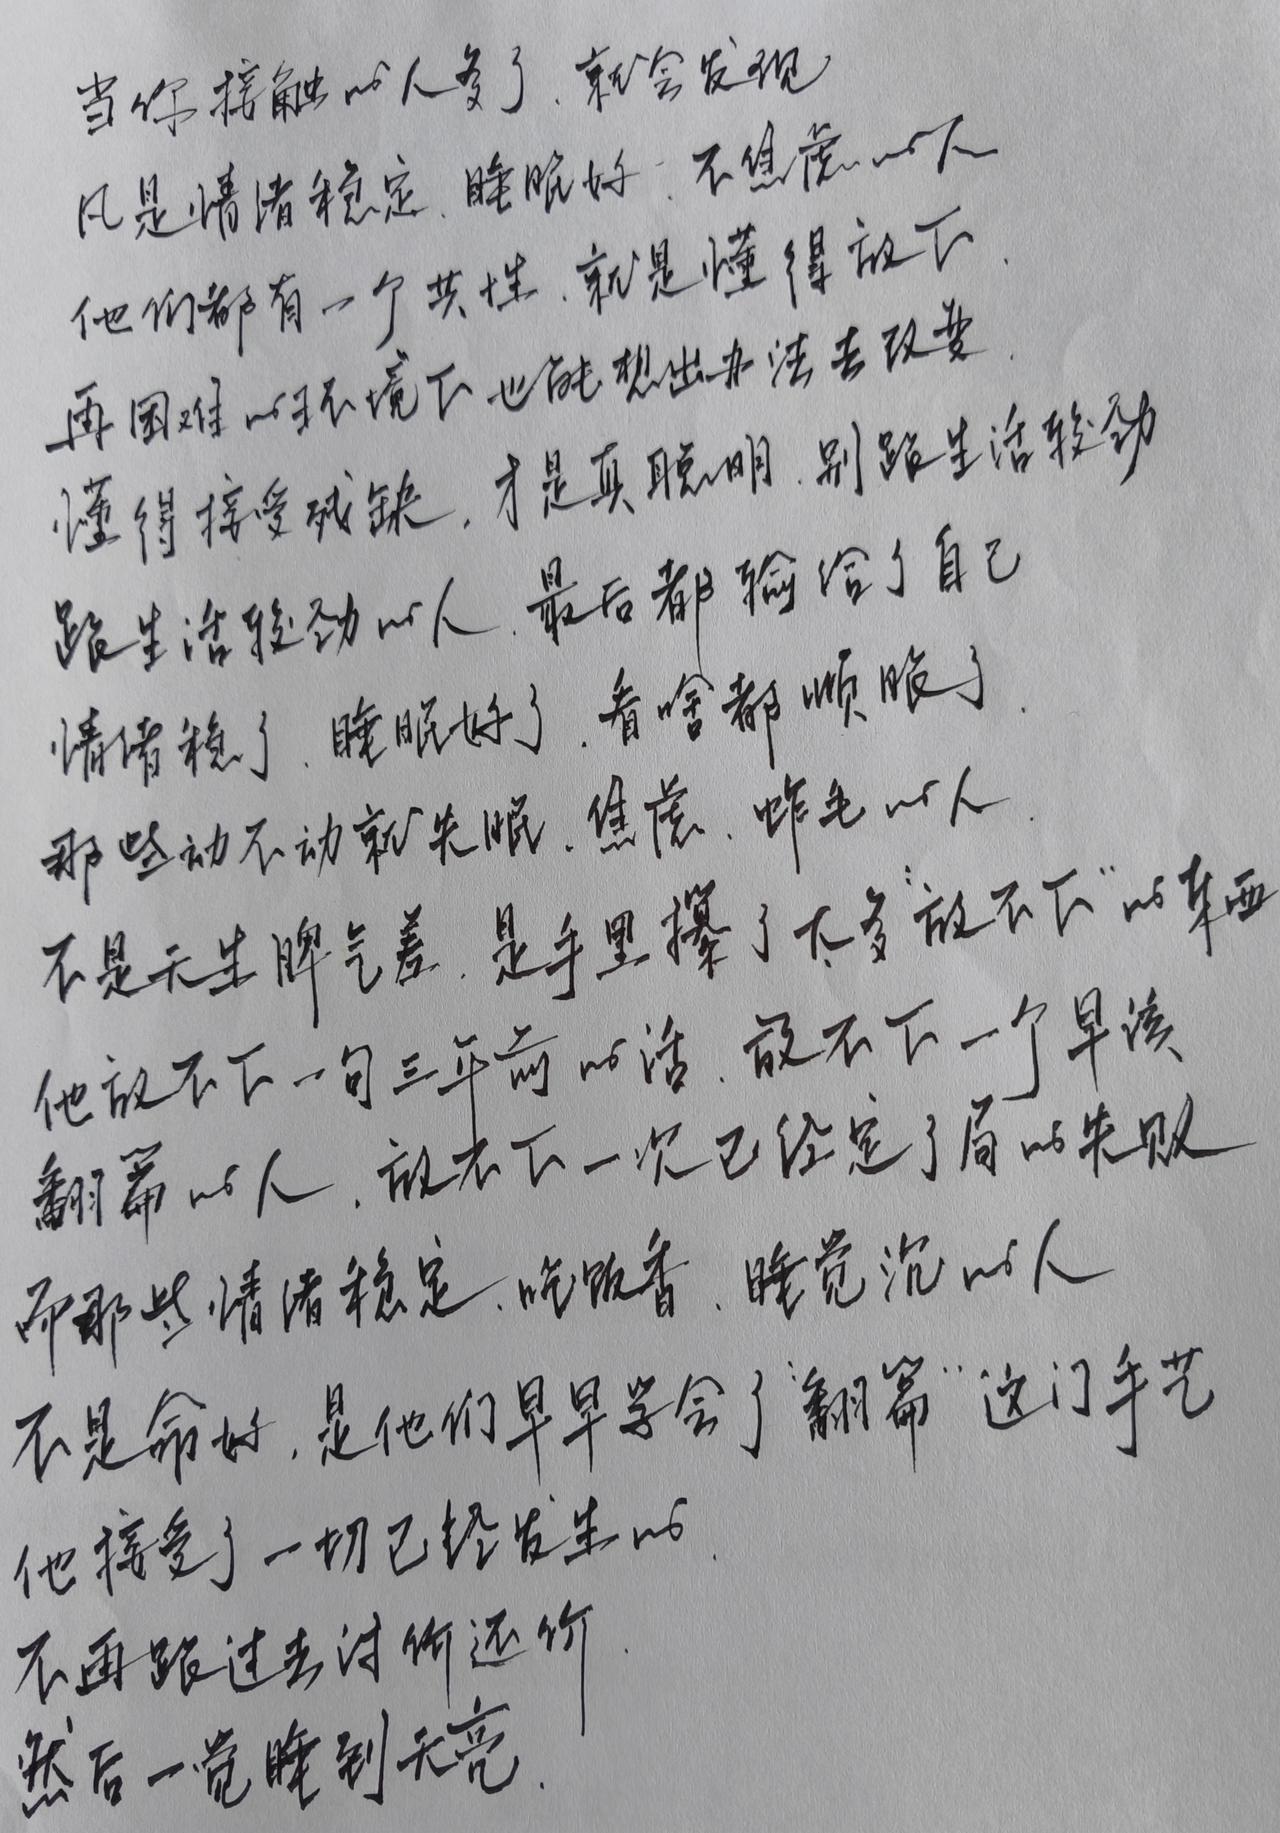 当你接触的人多了.就会发现
凡是情绪稳定.睡眠好.不焦虑的人
他们都有一个共性.就是懂得放下.
再困难的环境下也能想出办法去改变.
懂得接受残缺.才是真聪明.别跟生活较劲
跟生活较劲的人.最后都输给了自己
情绪稳了.睡眠好了.看啥都顺眼了.
那些动不动就失眠.焦虑.炸毛的人.
不是天生脾气差.是手里攥了太多“放不下”的东西
他放不下一句三年前的话.放不下一个早该
翻篇的人.放不下一次已经定了局的失败
而那些情绪稳定.吃饭香.睡觉沉的人
不是命好.是他们早早学会了“翻篇”这门手艺
他接受了一切已经发生的.
不再跟过去讨价还价.
然后一觉睡到天亮.